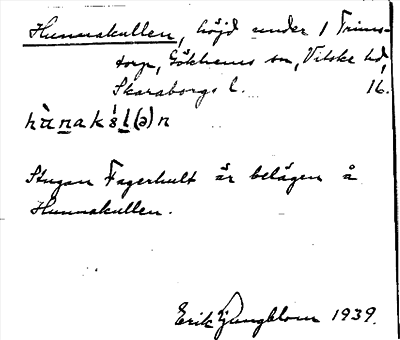 Hunnakullen, höjd under 1 Trims-
torp, Gökhems sn, Vilske hd,
Skaraborgs l. 16.
Stugan Fagerhult är belägen å
Hunnakullen.
Erik Ljungblom 1939.